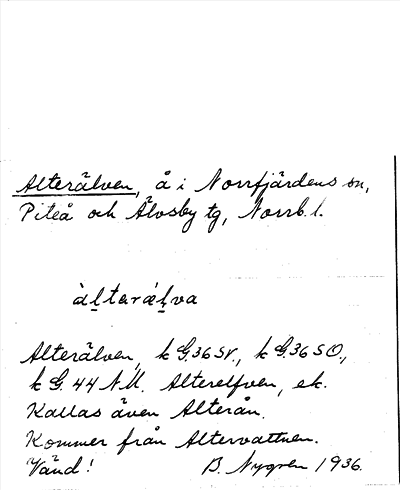 Alterälven, å i Norrfjärdens sn,
Piteå och Älvsby tg, Norrb. l.
àḻtarǽḻva
Alterälven, k G.36 SV., k G.36 SO.,
k G. 44 N.V. Alterelfven, ek.
Kallas även Alterån.
Kommer från Altervattnen.
Vänd! B. Nygren 1936.